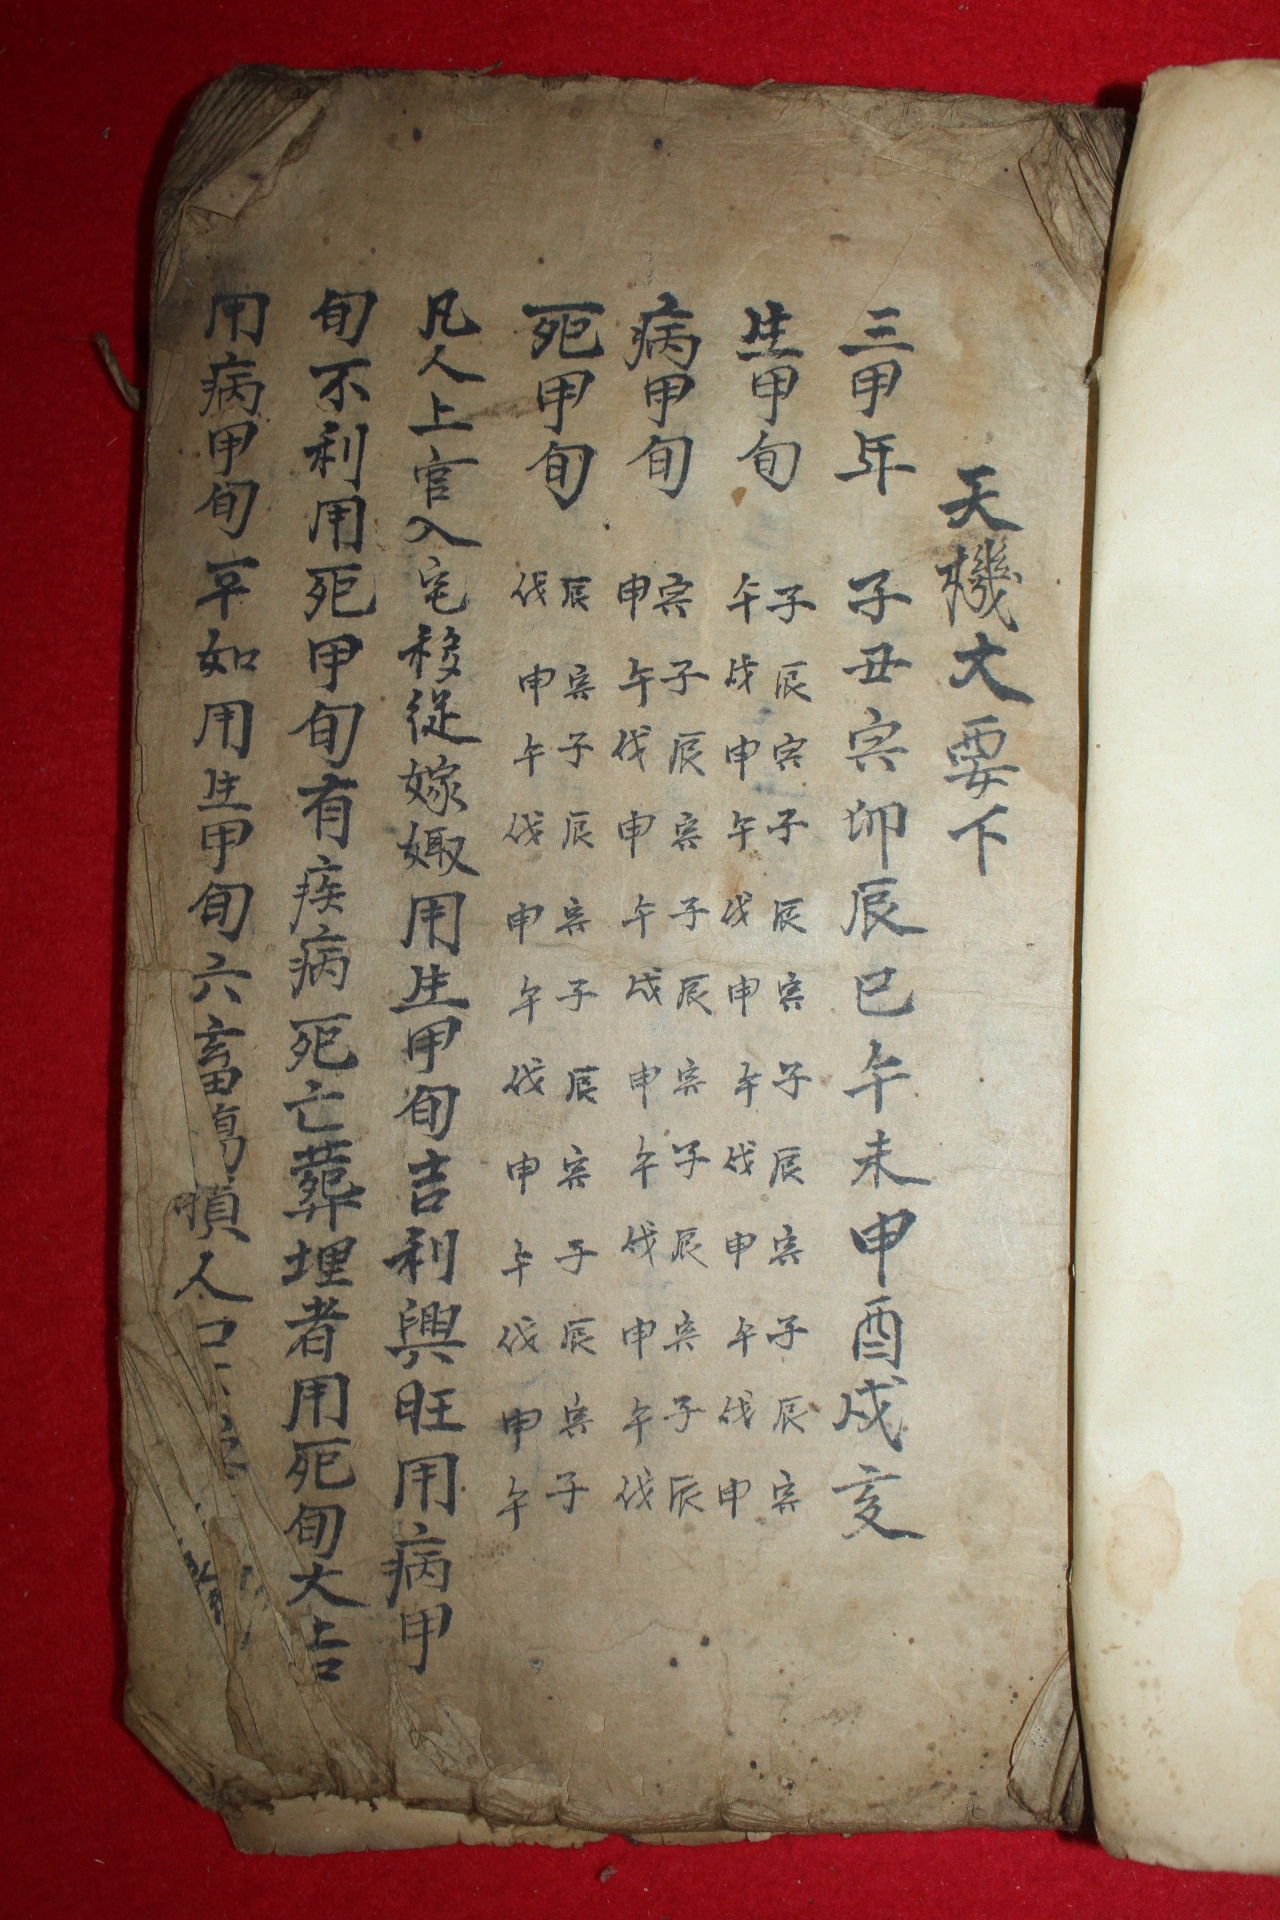 天機大要下
三甲年 子丑寅卯辰巳午未申酉戌亥
生甲旬 子午 辰戌 寅申 子午 辰戌 寅申 子午 辰戌 寅申 子午 辰戌 寅申
病甲旬 寅申 子午 辰戌 寅申 子午 辰戌 寅申 子午 辰戌 寅申 子午 辰戌
死甲旬 辰戌 寅申 子午 辰戌 寅申 子午 辰戌 寅申 子午 辰戌 寅申 子午
凡人上官入宅移徙嫁娵用生甲旬吉利興旺用病甲
旬不利用死甲旬有疾病死亡葬埋者用死旬大吉
用病甲旬平如用生甲旬六畜傷損人口